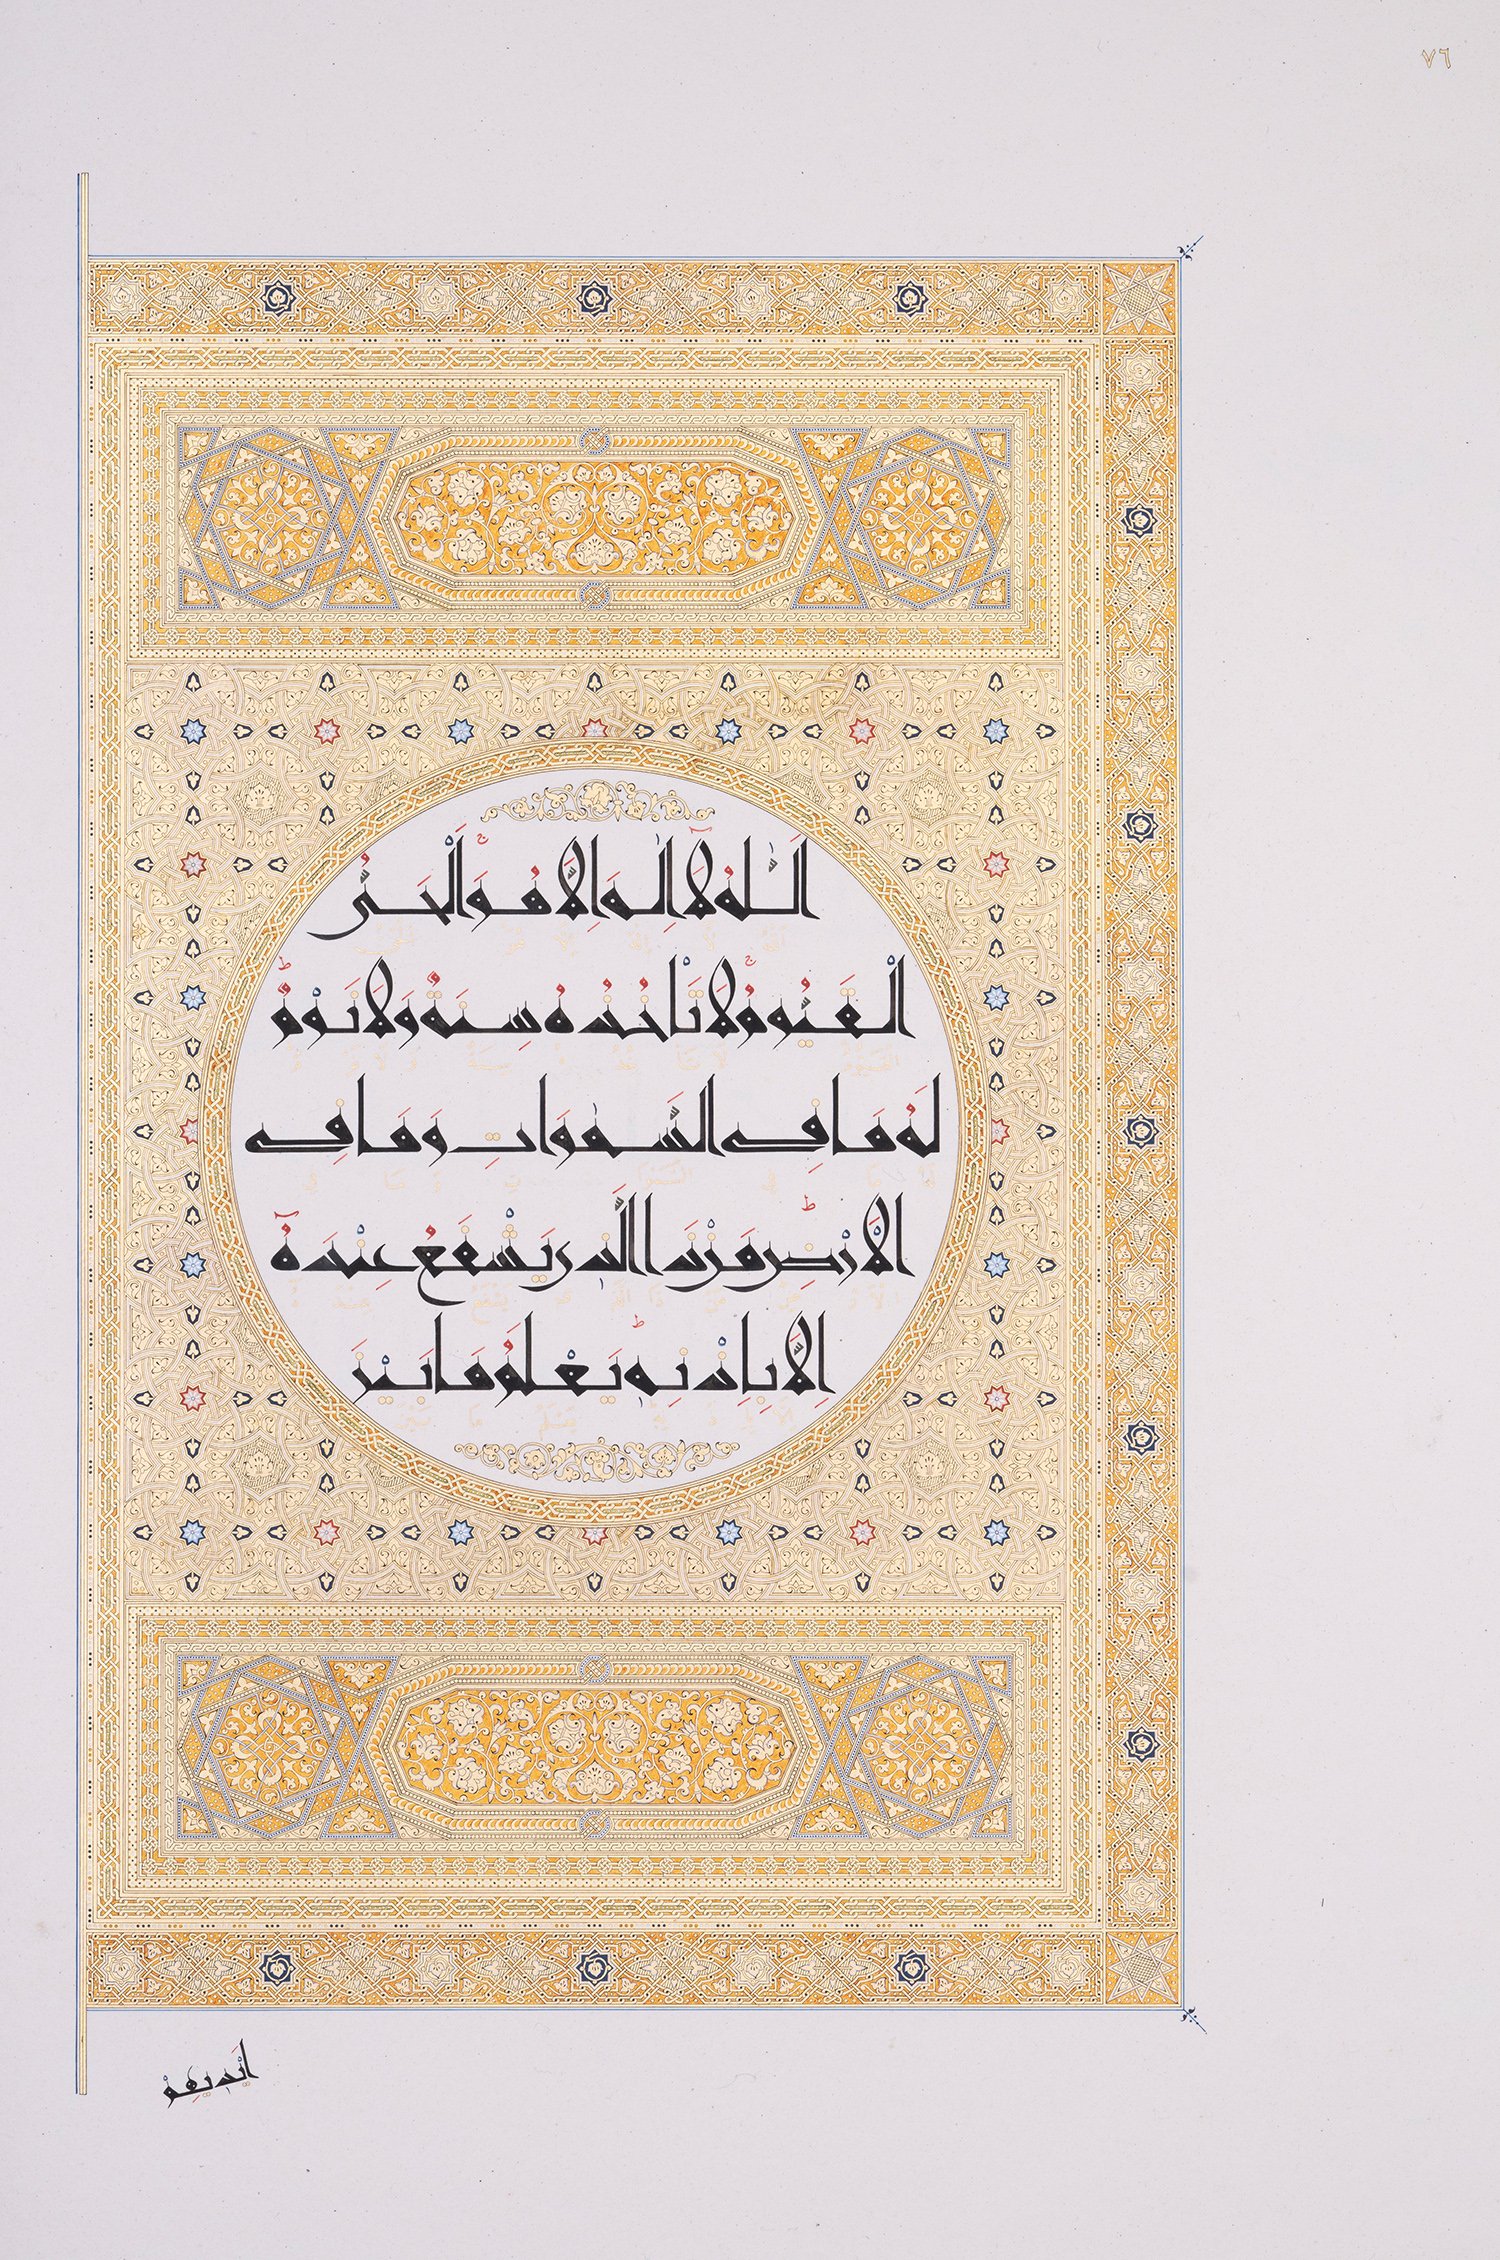 ٧٦
اَللّٰهُ لَآ اِلٰهَ اِلَّا هُوَ اَلْحَىُّ
اَلْقَيُّومُ لَا تَأْخُذُهُ سِنَةٌ وَلَا نَوْمٌ
لَهُ مَا فِى السَّمٰوَاتِ وَمَا فِى
الْاَرْضِ مَنْ ذَا الَّذِى يَشْفَعُ عِنْدَهُٓ
اِلَّا بِاِذْنِهِ يَعْلَمُ مَا بَيْنَ
اَيْدِيهِمْ